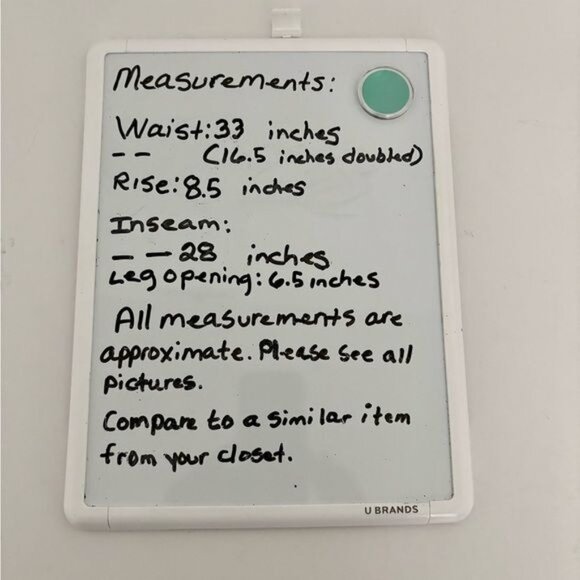 Measurements:
Waist: 33 inches
-- (16.5 inches doubled)
Rise: 8.5 inches
Inseam:
-- 28 inches
Leg opening: 6.5 inches
All measurements are
approximate. Please see all
pictures.
Compare to a similar item
from your closet.
U BRANDS